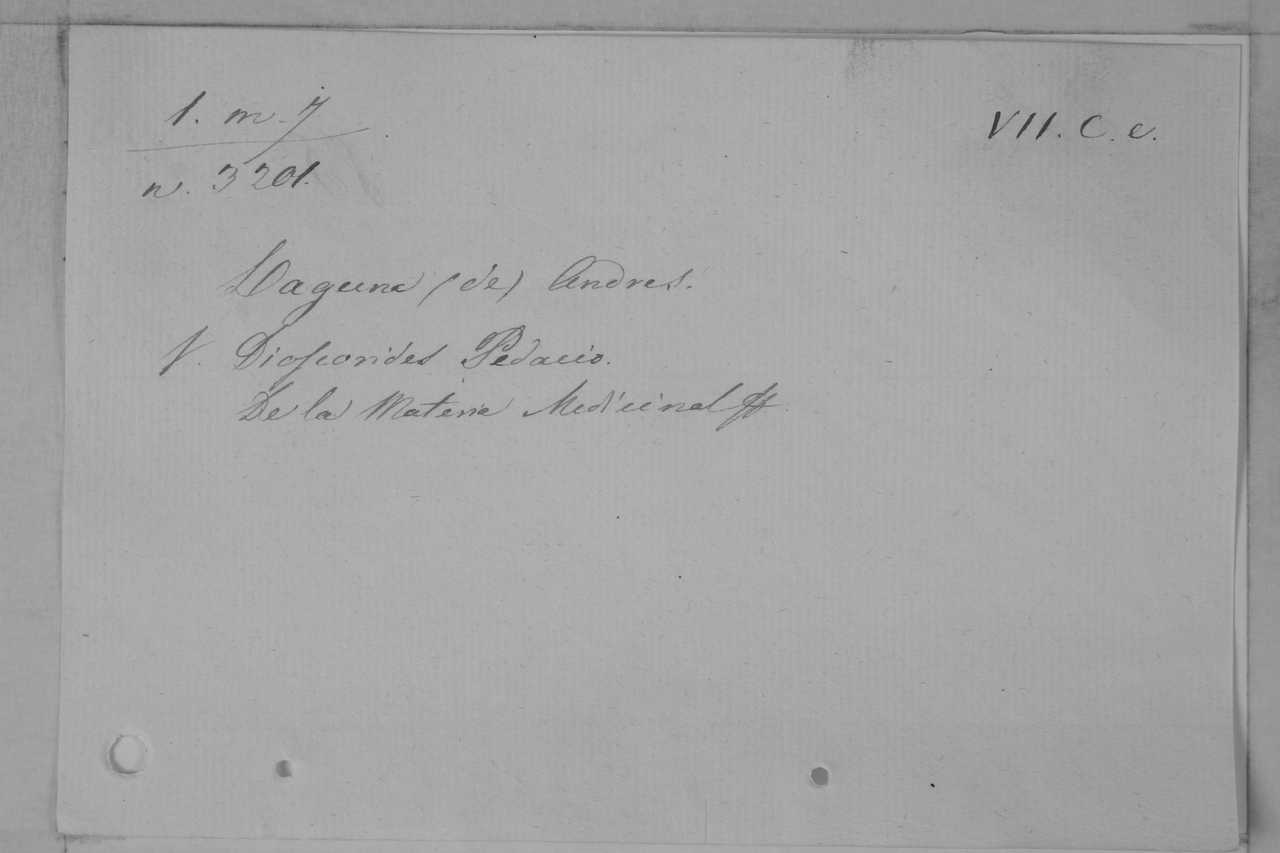 1. m. 7
VII. C. c.
n. 3201.
Laguna (de) Andres.
V. Dioscorides Pedacio.
De la Materia Medicinal